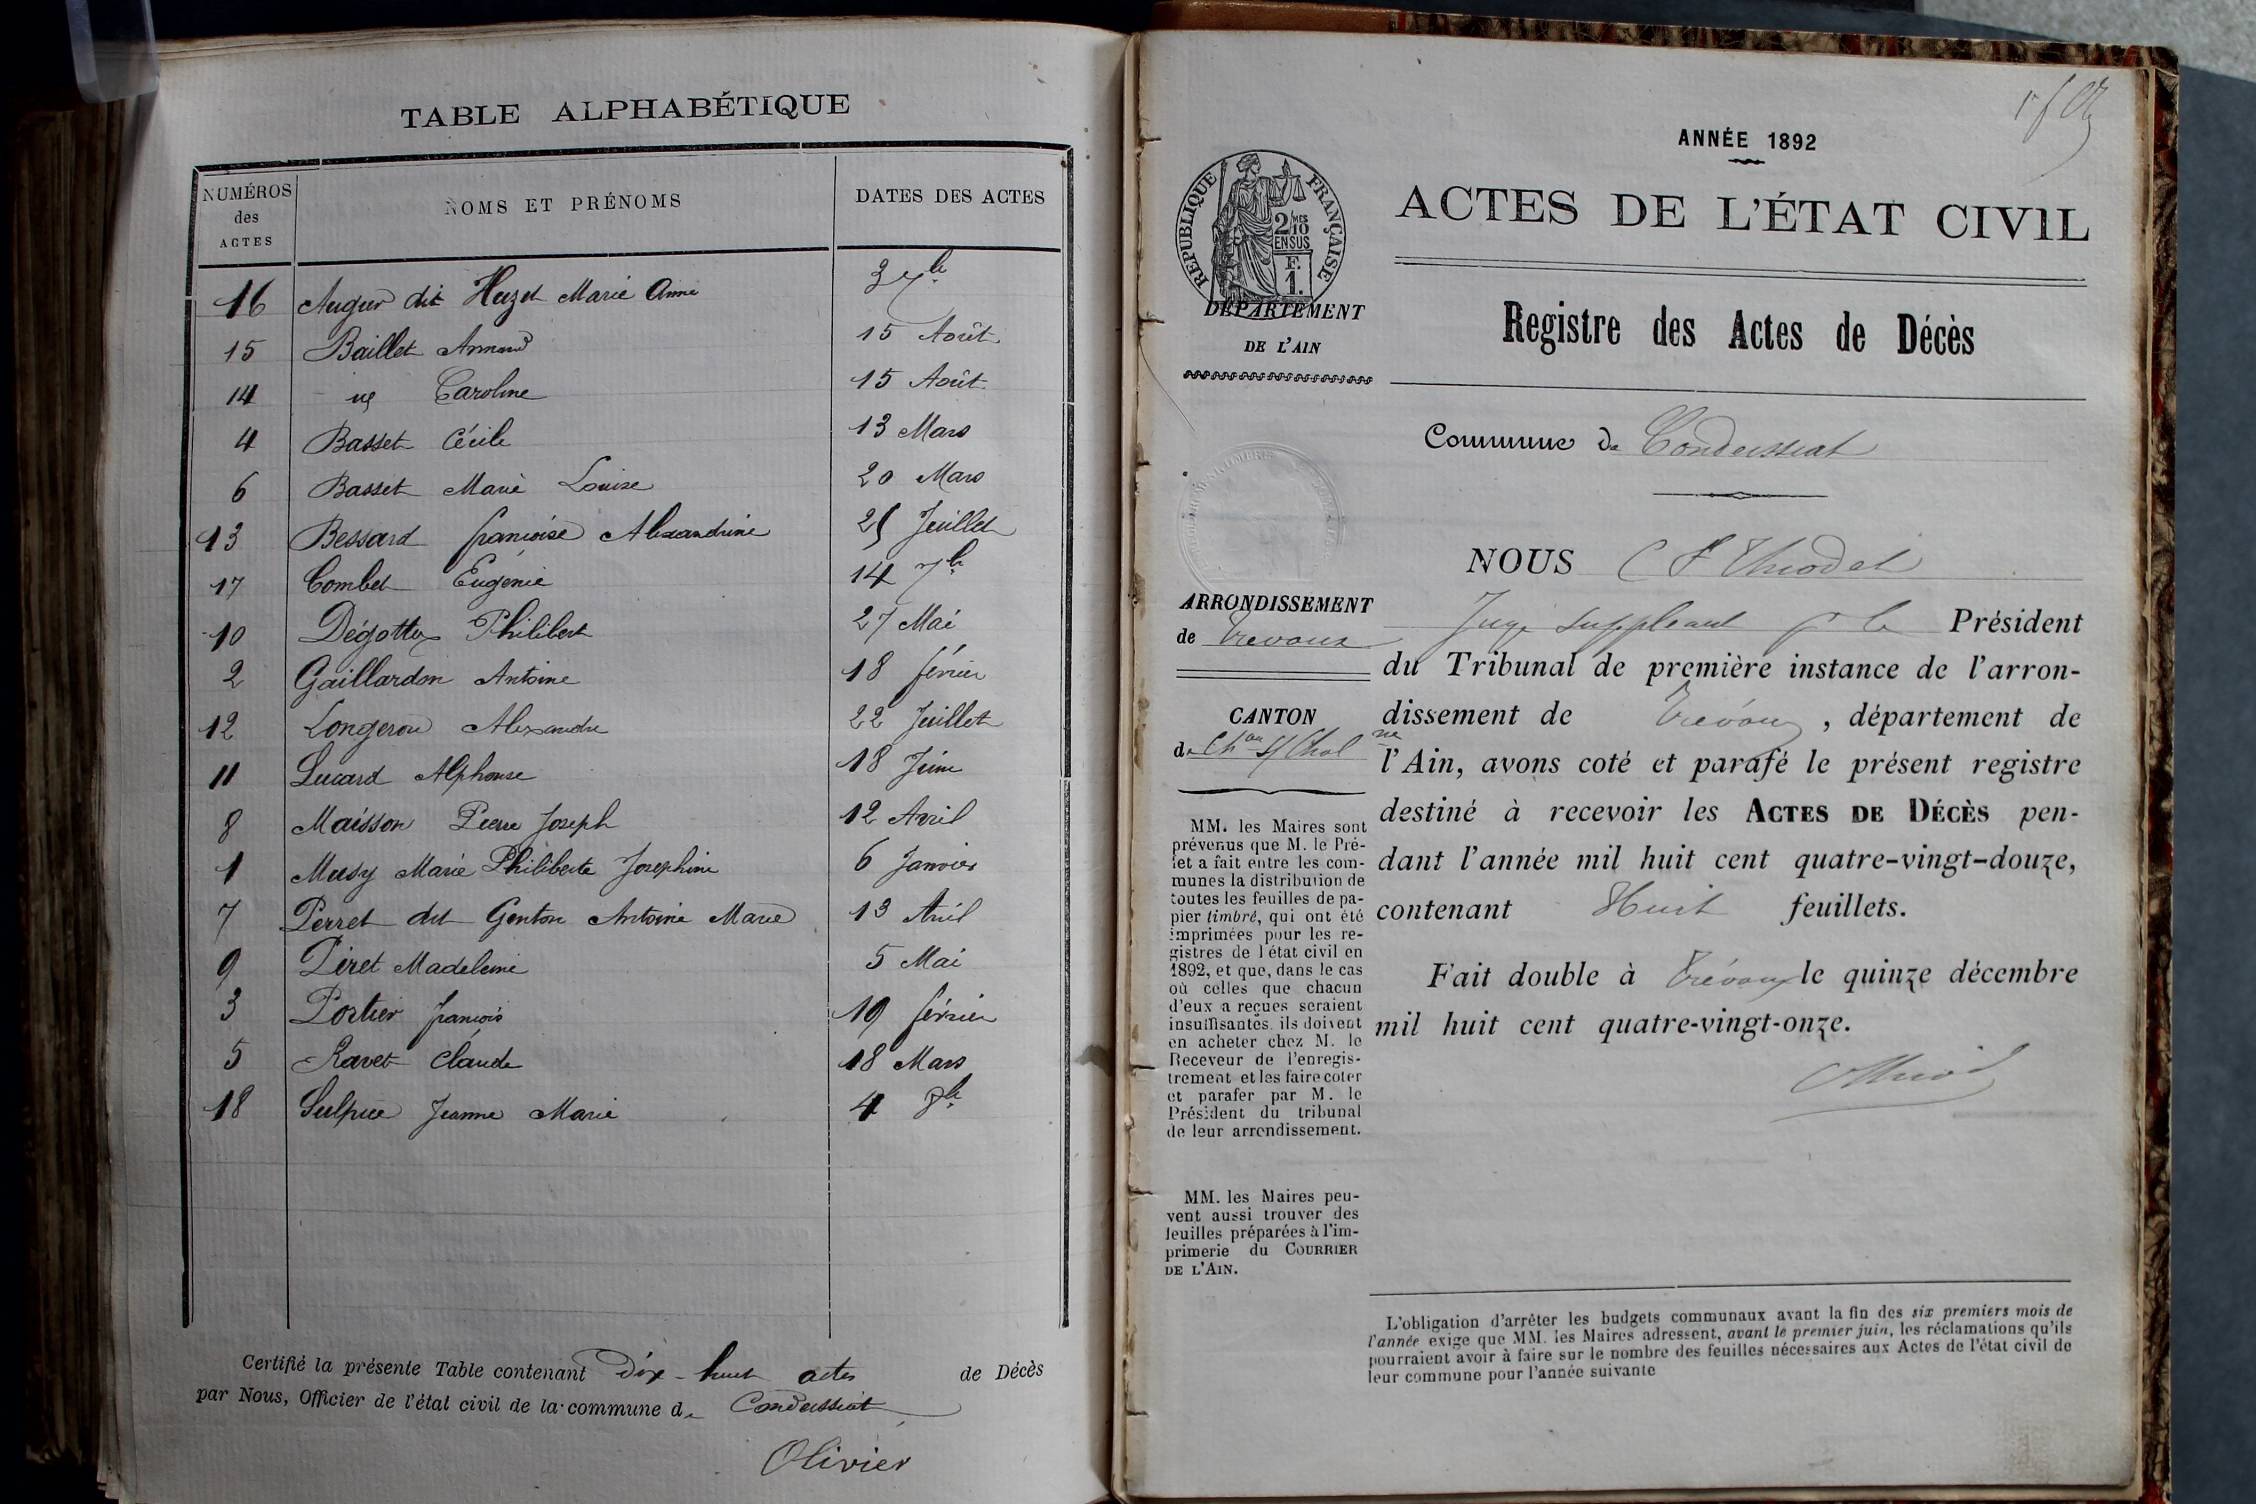 TABLE ALPHABÉTIQUE
NUMÉROS des ACTES NOMS ET PRÉNOMS DATES DES ACTES
16 Augur dit Huzet Marie Anne 3 7bre
15 Baillet Armand 15 Août
14 id Caroline 15 Août
4 Basset Cécile 13 Mars
6 Basset Marie Louise 20 Mars
13 Bessard françoise Alexandrine 25 Juillet
17 Combet Eugénie 14 7bre
10 Dégottex Philibert 27 Mai
2 Gaillardon Antoine 18 février
12 Longeron Alexandre 22 Juillet
11 Lucard Alphonse 18 Juin
8 Maisson Pierre Joseph 12 Avril
1 Musy Marie Philiberte Josephine 6 Janvier
7 Perret dit Genton Antoine Marie 13 Avril
9 Piret Madeleine 5 Mai
3 Portier françois 19 février
5 Ravet Claude 18 Mars
18 Sulpice Jeanne Marie 4 8bre
Certifié la présente Table contenant Dix-huit actes de Décès
par Nous, Officier de l'état civil de la commune de Condeissiat
Olivier
ANNÉE 1892
RÉPUBLIQUE FRANÇAISE
2/10 MES
EN SUS
F.
1.
ACTES DE L'ÉTAT CIVIL
DÉPARTEMENT
DE L'AIN
Registre des Actes de Décès
Commune de Condeissiat
ARRONDISSEMENT
de Trévoux
CANTON
de Chon s/ Chalne
MM. les Maires sont
prévenus que M. le Pré-
fet a fait entre les com-
munes la distribution de
toutes les feuilles de pa-
pier timbré, qui ont été
imprimées pour les re-
gistres de l'état civil en
1892, et que, dans le cas
où celles que chacun
d'eux a reçues seraient
insuffisantes, ils doivent
en acheter chez M. le
Receveur de l'enregis-
trement et les faire coter
et parafer par M. le
Président du tribunal
de leur arrondissement.
MM. les Maires peu-
vent aussi trouver des
feuilles préparées à l'im-
primerie du COURRIER
DE L'AIN.
NOUS C F Thiodet
Juge suppléant pr le Président
du Tribunal de première instance de l'arron-
dissement de Trévoux, département de
l'Ain, avons coté et parafé le présent registre
destiné à recevoir les ACTES DE DÉCÈS pen-
dant l'année mil huit cent quatre-vingt-douze,
contenant Huit feuillets.
Fait double à Trévoux le quinze décembre
mil huit cent quatre-vingt-onze.
L'obligation d'arrêter les budgets communaux avant la fin des six premiers mois de
l'année exige que MM. les Maires adressent, avant le premier juin, les réclamations qu'ils
pourraient avoir à faire sur le nombre des feuilles nécessaires aux Actes de l'état civil de
leur commune pour l'année suivante